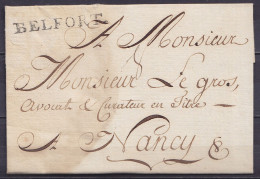 BELFORT
A Monsieur
Monsieur Le gros,
Avocat & Curateur en Titre
A Nancy